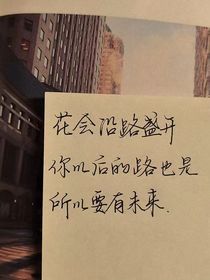 花会沿路盛开
你以后的路也是
所以要有未来.